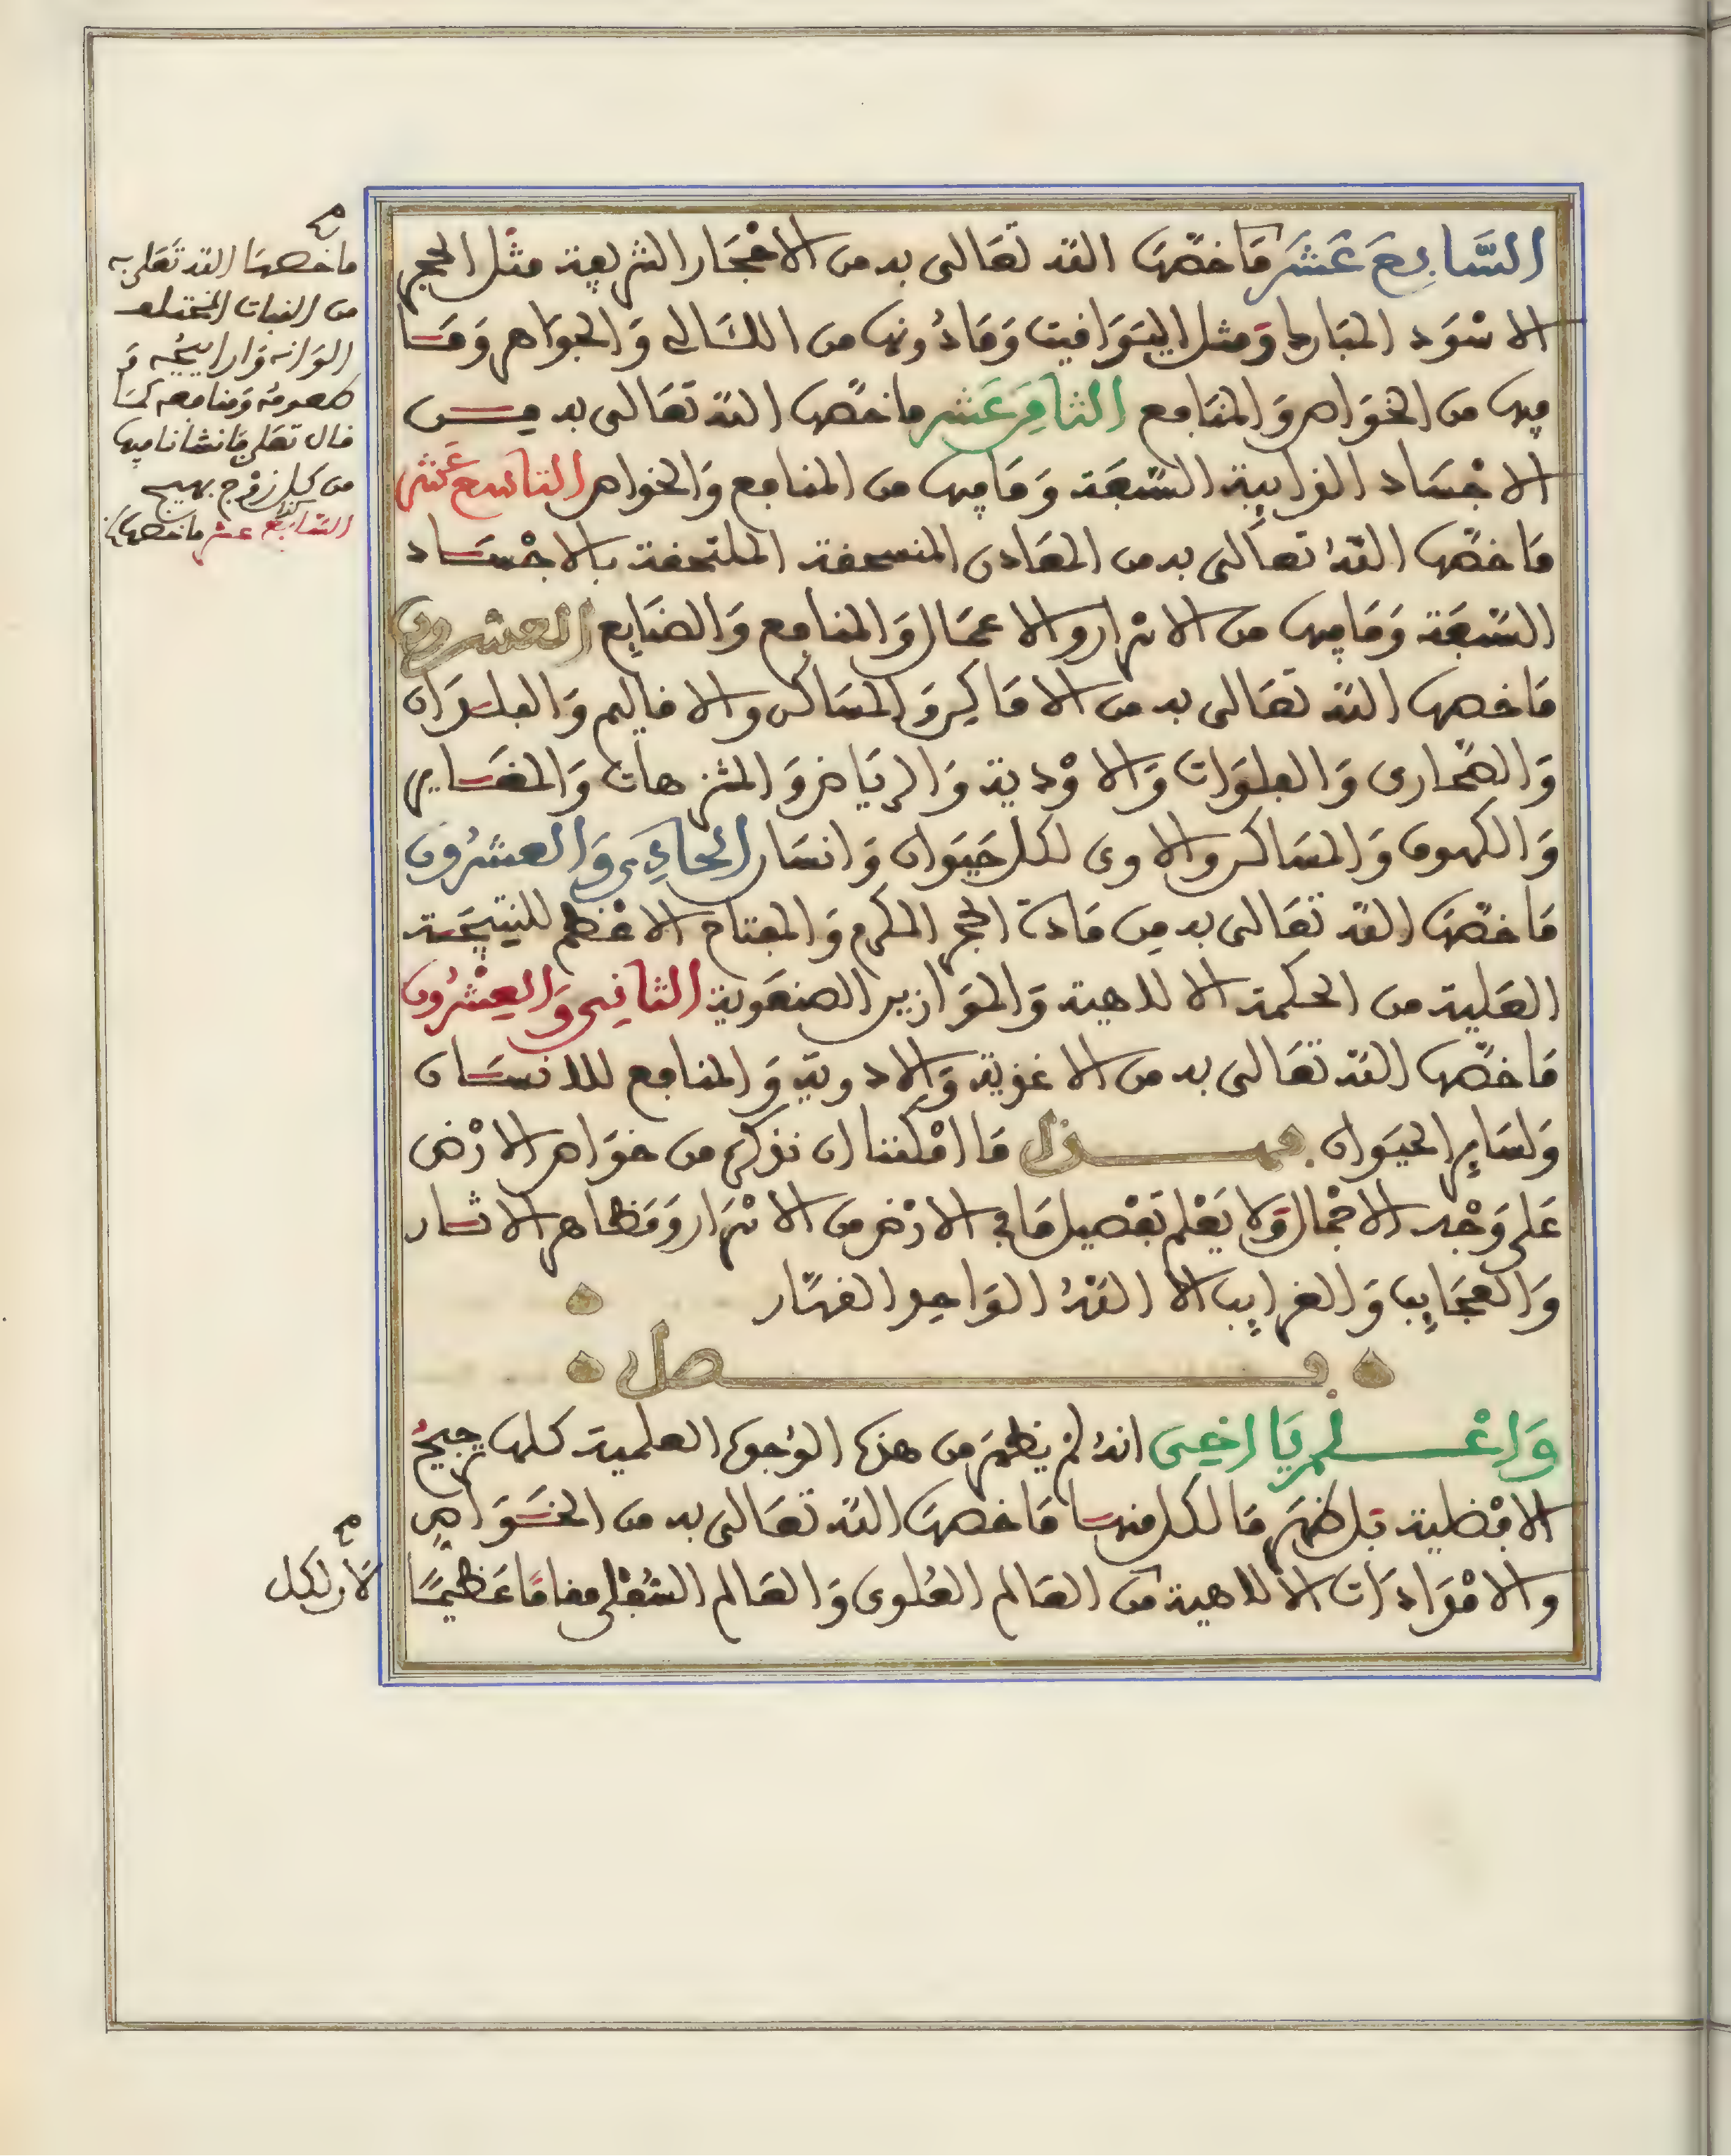 السَّابِعَ عَشَرَ مَا خَصَّهَا اللهُ تَعَالى به من الاحْجَار الشريفة مثل الحجر
الاسْوَد المبارك وَمثل اليَوَاقيت وَمَا دُونها من اللئالى وَالجَوَاهر وَمَا
فيها من الخوَاص وَالمنَافع الثامِنَ عَشر ما خصَّها الله تعَالى به مِن
الاجْسَاد الذايبة السَّبعَة وَمَا فيها من المنافع وَالخواص التاسع عَشر
مَا خصَّها اللهُ تعَالى به من المعَادن المنسحقة الملتحقة بالاجْسَاد
السَّبعَة وَمَا فيها من الاسْرار والاعمَال وَالمنافع وَالصَنَايع العشرون
مَا خصها الله تعَالى به من الامَاكِن وَالمسَاكن والاقاليم وَالبلدَان
وَالصَّحارى وَالفلوَات وَالاوْدية وَالريَاض وَالمتنزهات وَالمغَاير
وَالكهوف وَالمسَاكن والاوى لكل حيَوان وَانسَان الحادِى وَالعشرُون
مَا خصَّهَا الله تعَالى به مِن مَادة الحجر المكرم وَالمفتاح الاعْظم للنتيجَة
العَلية من الحكمة الالاهية وَالموَازين الصنعَوية الثانِى وَالعِشْرُون
مَا خصَّها الله تعَالى به من الاغذية وَالادوية وَالمنافع للانسَان
وَلسَايرِ الحيَوان فهذا مَا امْكننا ان نذكر من خوَاص الارْض
عَلى وَجْه الاجْمال وَلا يَعْلم تفْصيل مَا فى الارْض من الاسْرَار وَمَظاهر الاثار
وَالعجَايِب وَالغرايِب الا اللهُ الوَاحد القهَّار
فصل
وَاعْلم يَا اخِى انهُ لمْ يظهرَ من هذه الوُجوه العلمية كلها جميعُ
الافضلية بل ظهرَ مَا لكل منها مَا خصهَا الله تعَالى به من الخوَاصِ
والامْدَادَات الالاهية من العَالم العُلوى وَالعَالم السُّفْلى مقامًا عَظيمًا
ما خصهَا الله تعَلى به
من النبات المختلف
الوَانه وَارايحُه وَ
طعومُه وَمنافعه كمَا
قال تعَلى فَانشانا فيها
من كل زوْج بهيج
السَّابع عشر ما خصها
لأن لكل